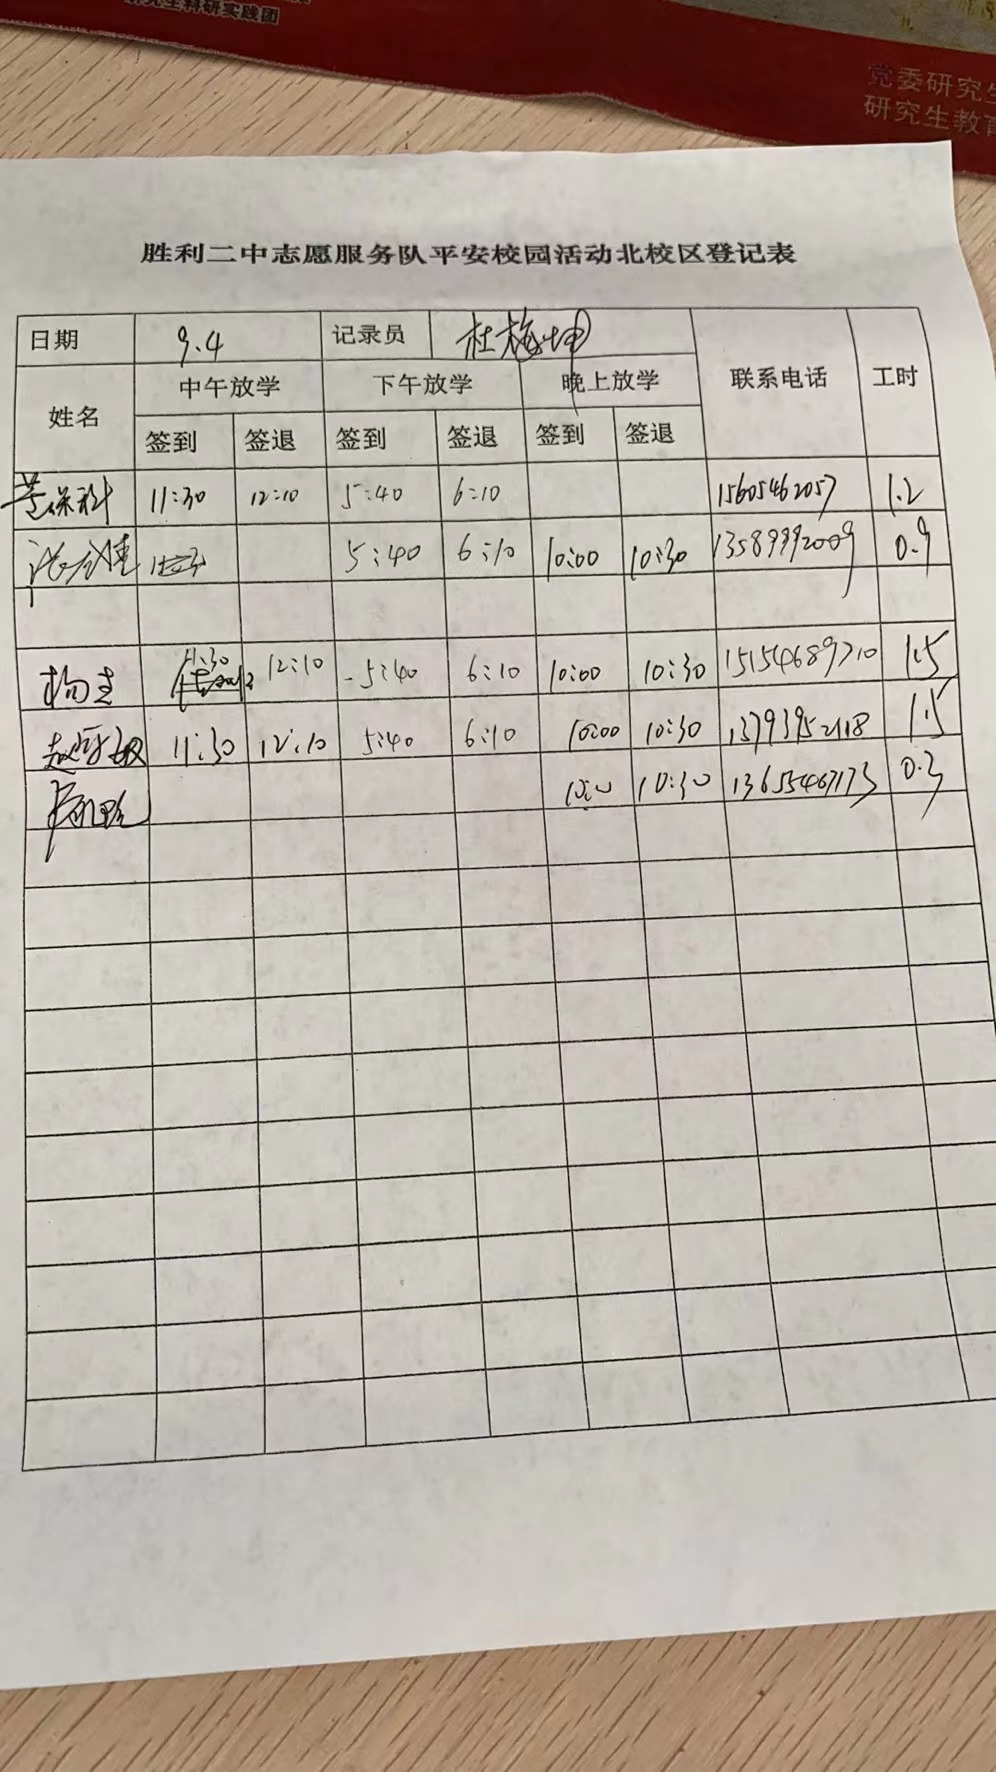 研究生科研实践团
党委研究生
研究生教育
胜利二中志愿服务队平安校园活动北校区登记表
日期 9.4 记录员 杜梅坤 联系电话 工时
姓名 中午放学 下午放学 晚上放学
签到 签退 签到 签退 签到 签退
11:30 12:10 5:40 6:10 15605462057 1.2
5:40 6:10 10:00 10:30 13589992009 0.9
11:30 12:10 5:40 6:10 10:00 10:30 15154689710 1.5
11:30 12:10 5:40 6:10 10:00 10:30 13793952118 1.5
10:00 10:30 13655467173 0.3